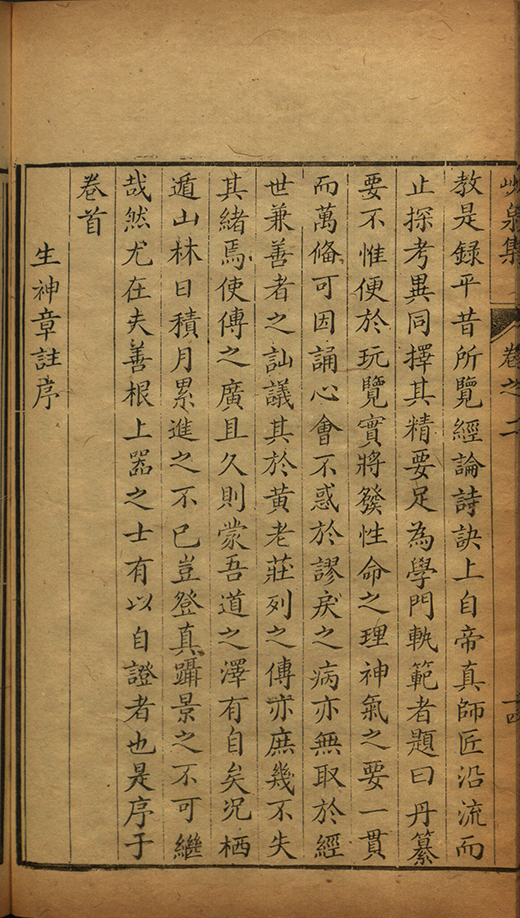 峴泉集 卷之二 十四
教是録平昔所覽經論詩訣上自帝真師匠沿流而
止探考異同擇其精要足為學門軌範者題曰丹纂
要不惟便於玩覽實將發性命之理神氣之要一貫
而萬僃可因誦心會不惑於謬戾之病亦無取於經
世兼善者之訕議其於黄老莊列之傳亦庶幾不失
其緒焉使傳之廣且久則蒙吾道之澤有自矣况栖
遁山林日積月累進之不已豈登真躡景之不可繼
哉然尤在夫善根上器之士有以自證者也是序于
卷首
生神章註序